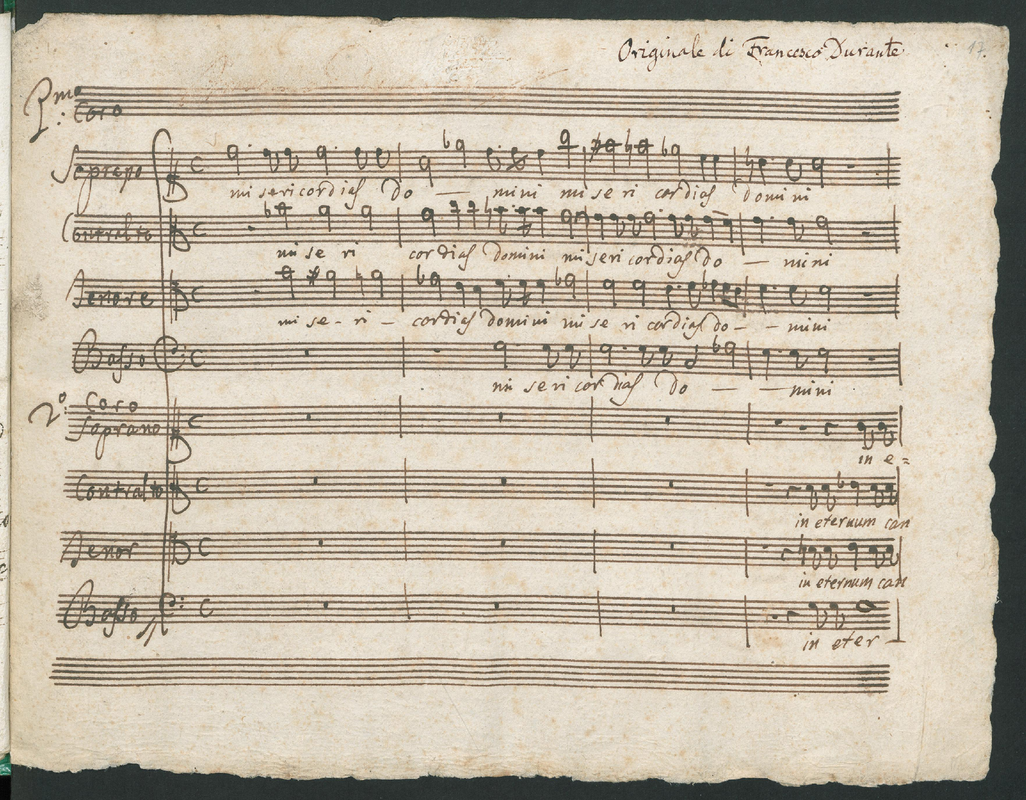 Originale di Francesco Durante 17.
Pmo
Coro
Soprano
misericordias do — mini mise ri cordias domini
Contralto
mi se ri cordias domini miseri cordias do — mini
Tenore
mi se - ri - cordias domini mi se ri cordias do - - mini
Basso
mi se ri cor dias do — — mini
2º Coro
Soprano
in e =
Contralto
in eternum can
Tenor
in eternum can
Basso
in eter —